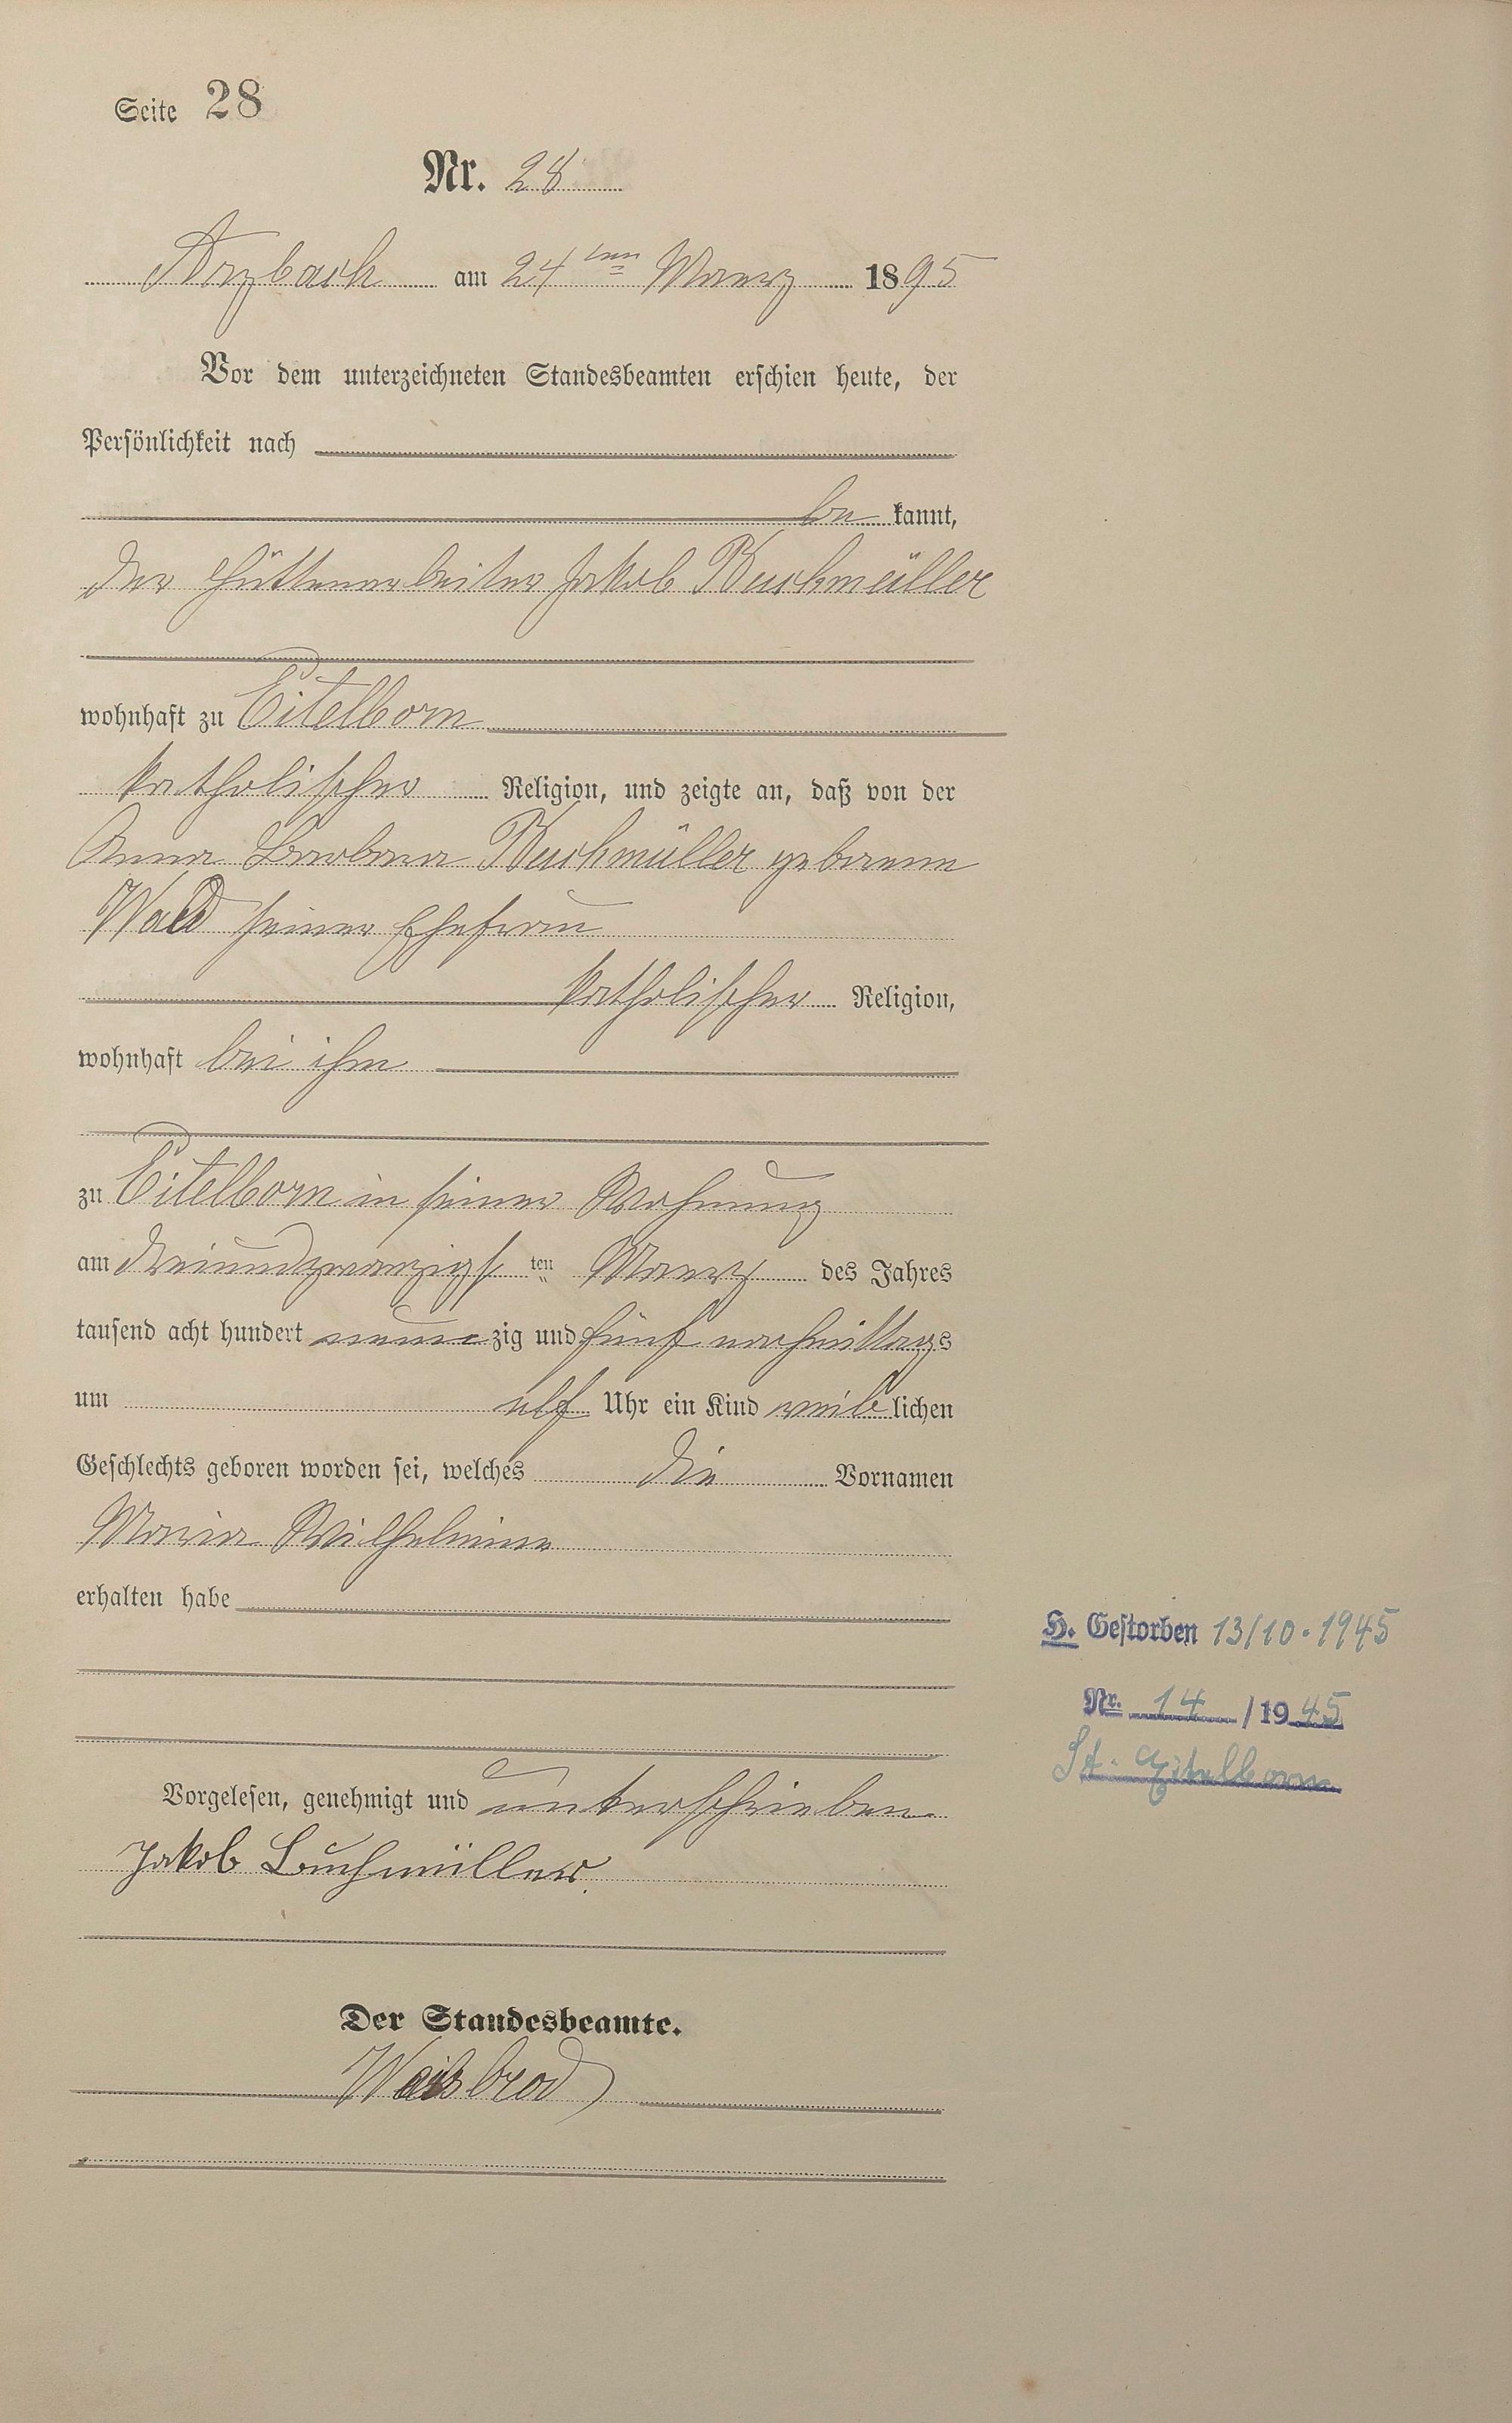 Seite 28
Nr. 28
Arzbach am 24ten Maerz 1895
Vor dem unterzeichneten Standesbeamten erschien heute, der
Persönlichkeit nach
be kannt,
der Hüttenarbeiter Jakob Buchmüller
wohnhaft zu Eitelborn
katholischer Religion, und zeigte an, daß von der
Anna Barbara Buchmüller geborene
Wald seiner Ehefrau
katholischer Religion,
wohnhaft bei ihm
zu Eitelborn in seiner Wohnung
am dreiundzwanzigsten Maerz des Jahres
tausend acht hundert neunzig und fünf nachmittags
um elf Uhr ein Kind weiblichen
Geschlechts geboren worden sei, welches die Vornamen
Maria Wilhelmina
erhalten habe
H. Gestorben 13/10.1945
Nr. 14 /1945
St. Eitelborn
Vorgelesen, genehmigt und unterschrieben
Jakob Buchmüller.
Der Standesbeamte.
Weisbrod